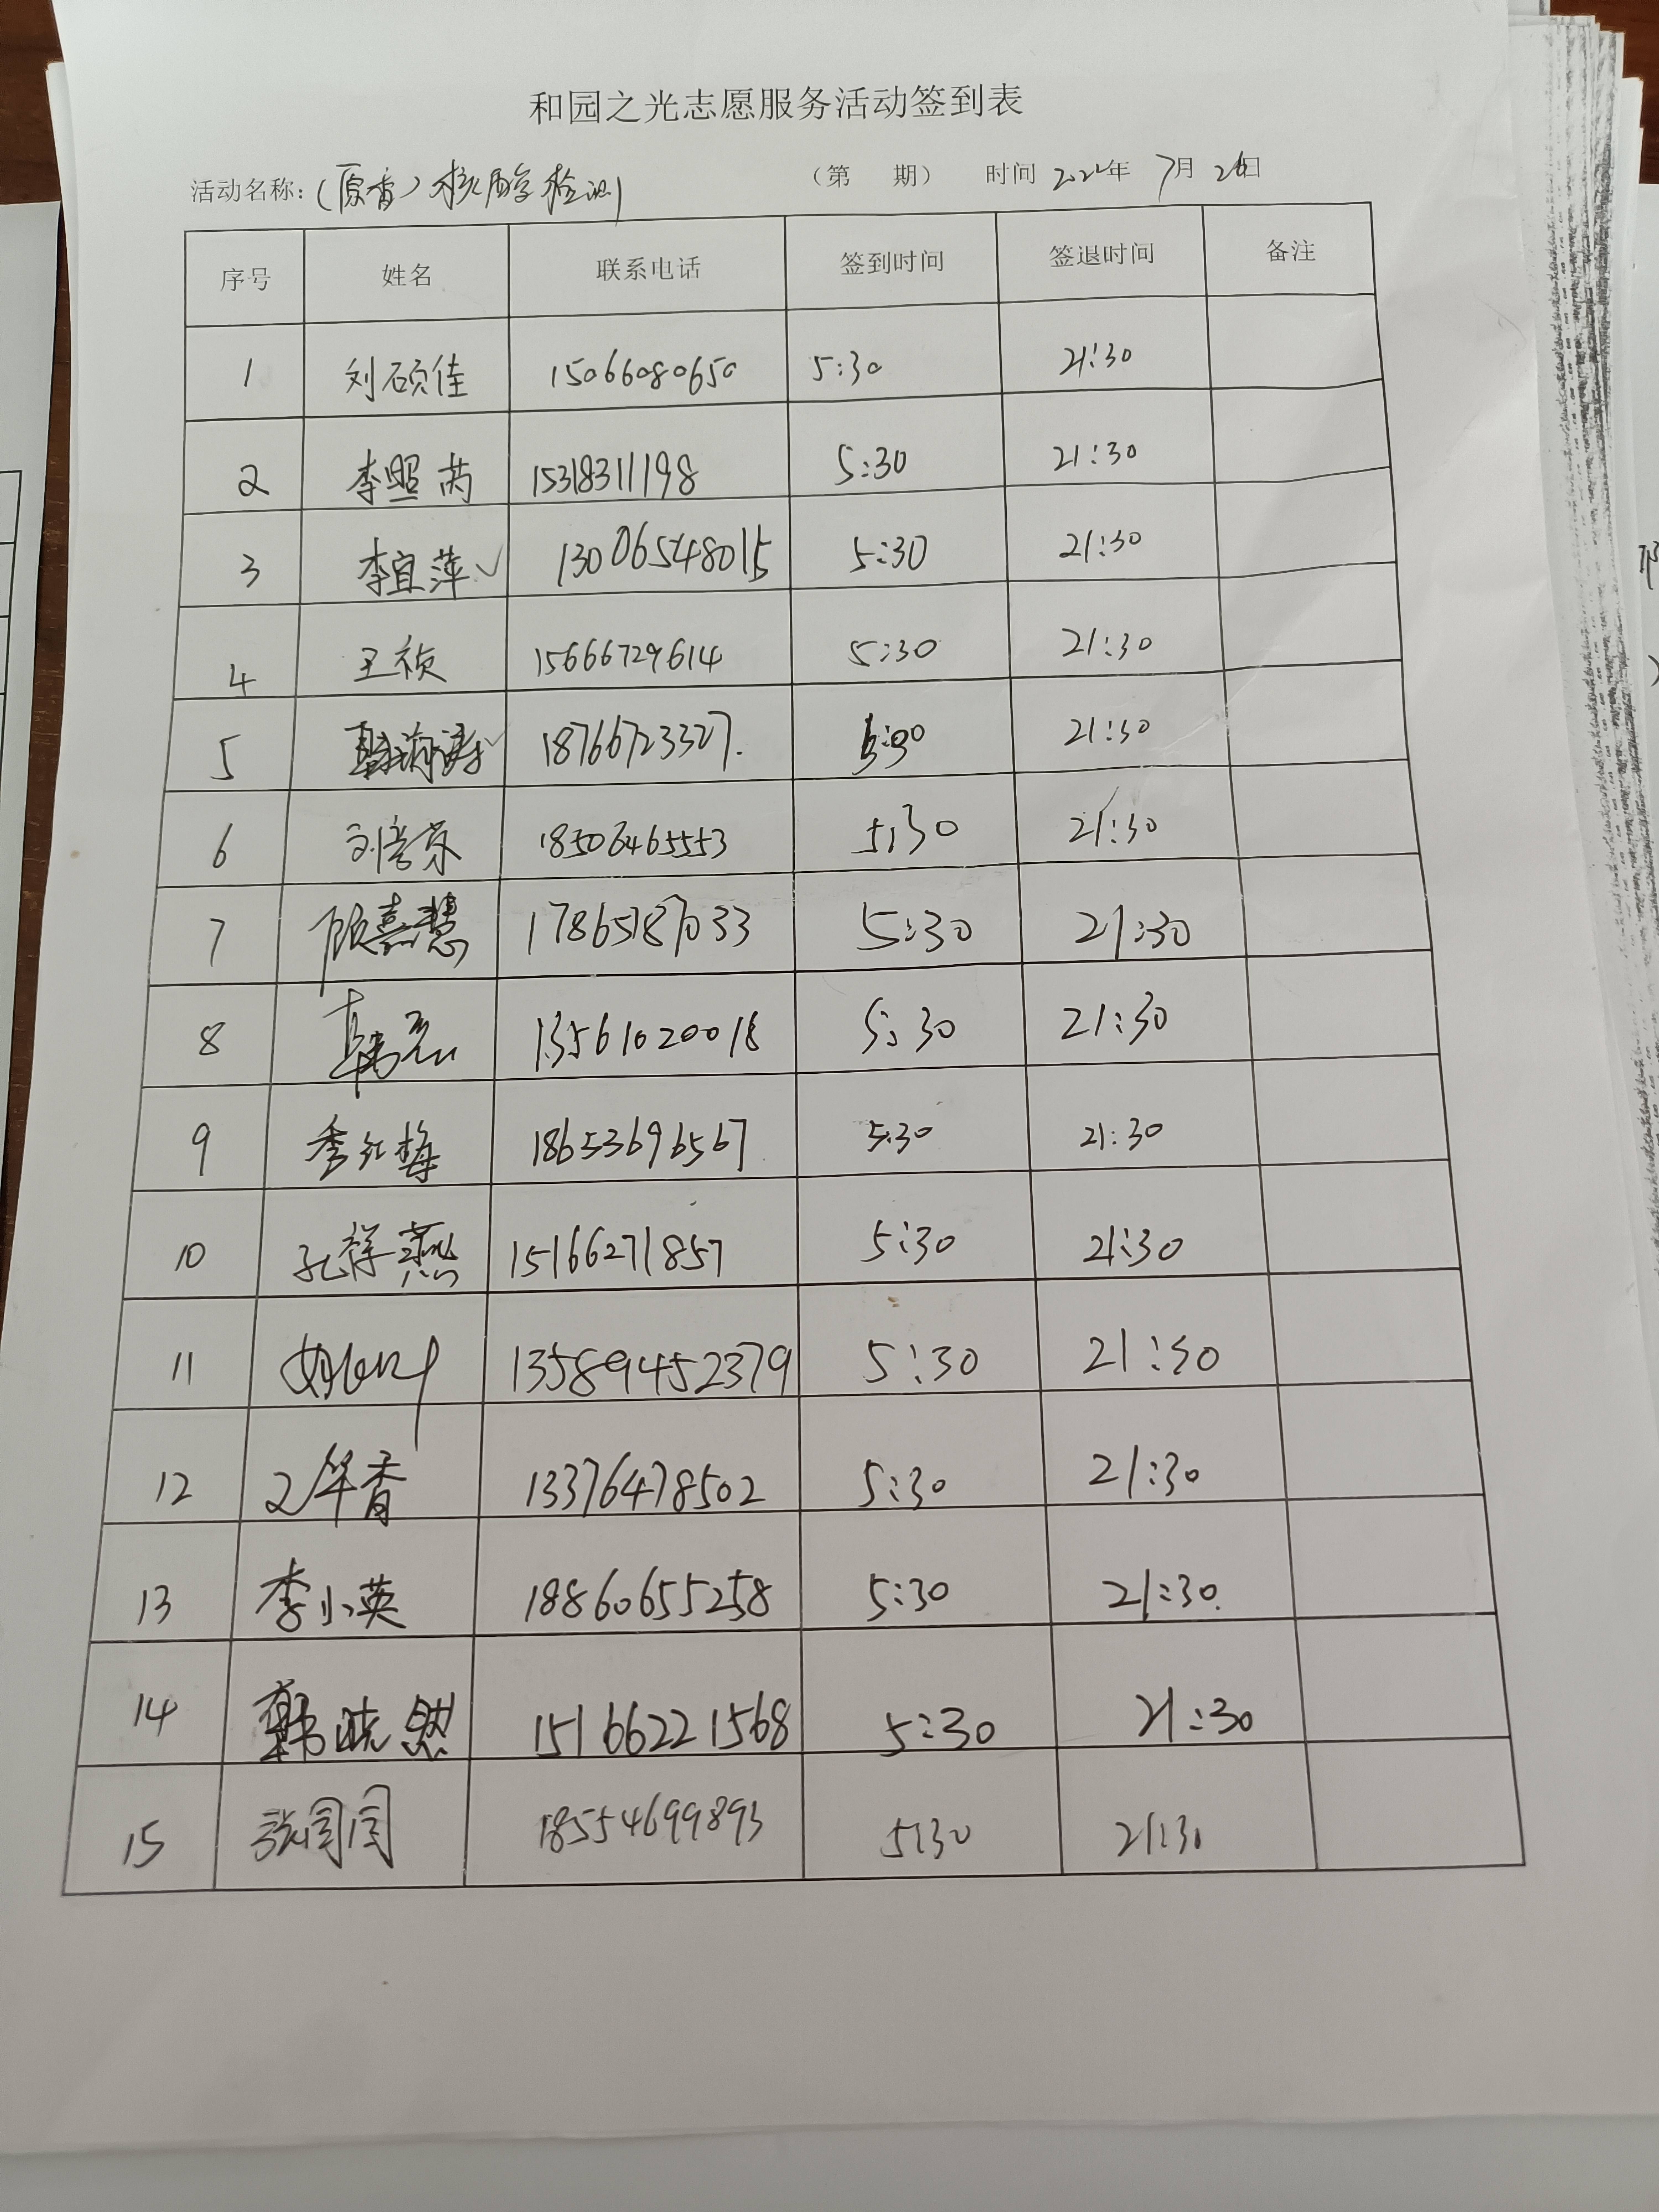 和园之光志愿服务活动签到表
活动名称:（原香）核酸检测 （第 期） 时间 2022年 7月 26日
序号 姓名 联系电话 签到时间 签退时间 备注
1 刘硕佳 15066080650 5:30 21:30
2 李照芮 15318311198 5:30 21:30
3 李宜萍✓ 13006548015 5:30 21:30
4 王祯 15666729614 5:30 21:30
5 18766723327. 5:30 21:30
6 18506465553 5:30 21:30
7 顾嘉慧 17865187033 5:30 21:30
8 13561020018 5:30 21:30
9 季红梅 18653696567 5:30 21:30
10 孔祥燕 15166271857 5:30 21:30
11 13589452379 5:30 21:30
12 13376478502 5:30 21:30
13 李小英 18860655258 5:30 21:30
14 韩晓然 15166221568 5:30 21:30
15 张闰闰 18554699893 5:30 21:30